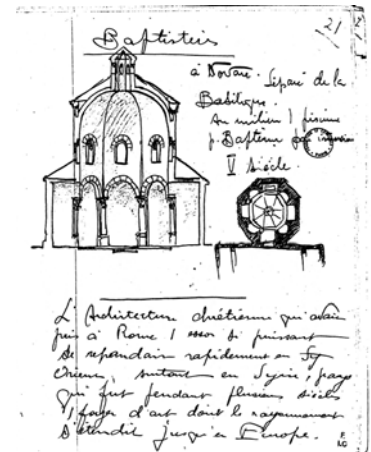 21
Baptistère
à Novare. Séparé de la
Basilique.
Au milieu 1 piscine
p. Baptême par immersion
V Siècle
L'Architecture chrétienne qui avait
pris à Rome 1 essor si puissant
se répandait rapidement en
Orient, surtout en Syrie, pays
qui fut pendant plusieurs siècles
1 foyer d'art dont le rayonnement
s'étendit jusqu'en Europe.